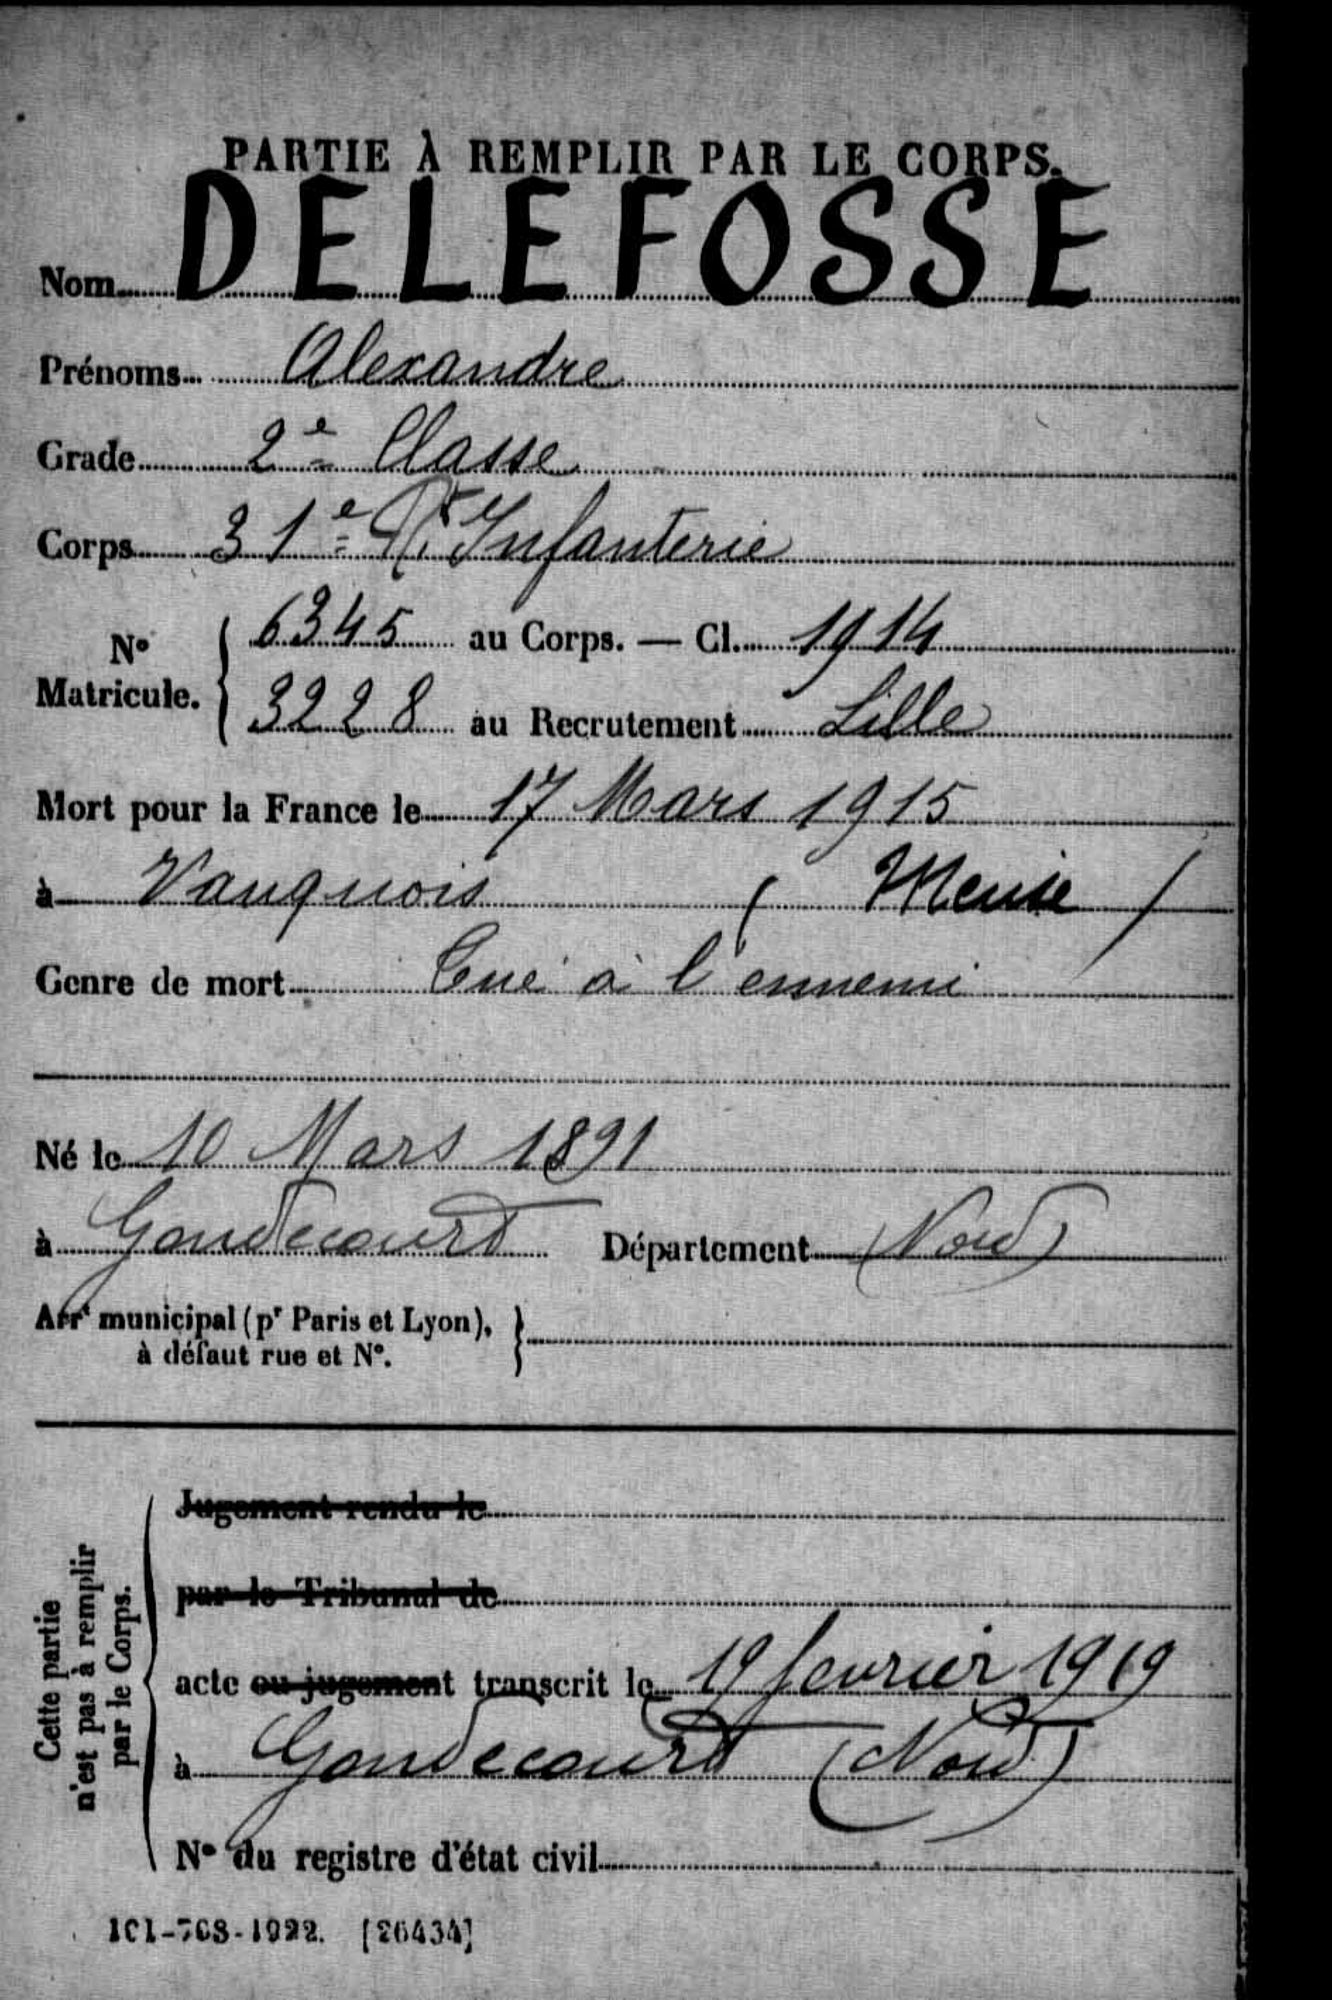 PARTIE À REMPLIR PAR LE CORPS.
Nom DELEFOSSE
Prénoms Alexandre
Grade 2e Classe
Corps 31e Rt Infanterie
No Matricule. { 6345 au Corps. — Cl. 1914
3228 au Recrutement Lille
Mort pour la France le 17 Mars 1915
à Vauquois ( Meuse )
Genre de mort Tué à l'ennemi
Né le 10 Mars 1891
à Gondecourt Département (Nord)
Arrt municipal (pr Paris et Lyon), }
à défaut rue et No.
Cette partie
n'est pas à remplir
par le Corps.
Jugement rendu le
par le Tribunal de
acte ou jugement transcrit le 19 fevrier 1919
à Gondecourt (Nord)
No du registre d'état civil
101-708-1922. [26434]